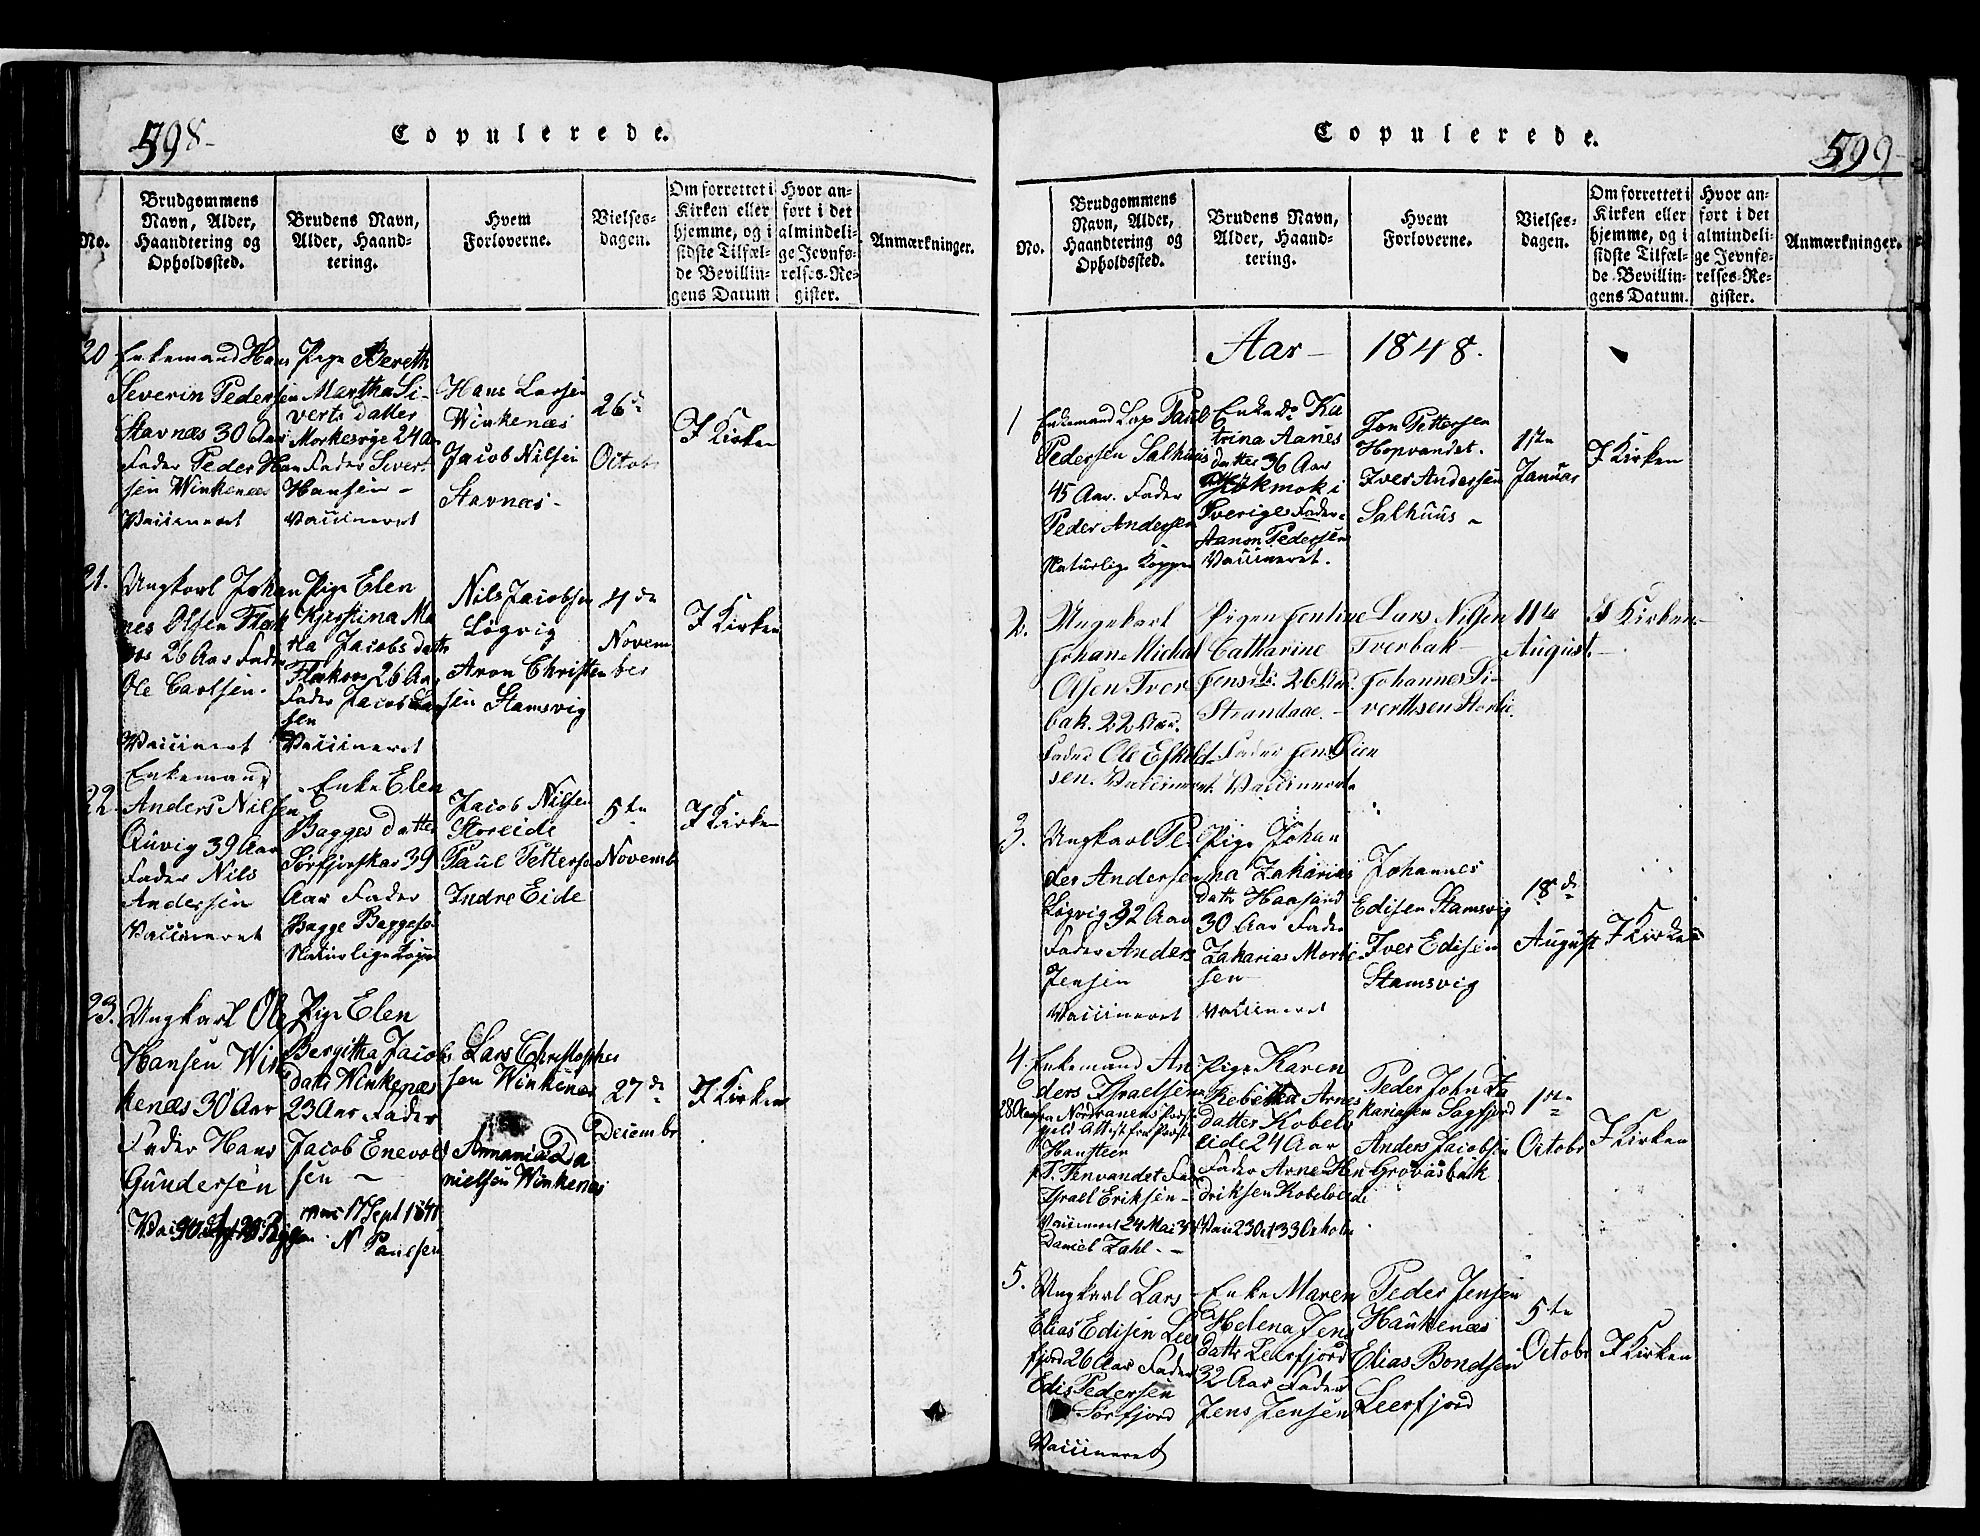 598-
Copulerede.
No.
Brudgommens
Navn, Alder,
Haandtering og
Opholdssted.
Brudens Navn,
Alder, Haand-
tering.
Hvem
Forloverne.
Vielses-
dagen.
Om forrettet i
Kirken eller
hjemme, og i
sidste Tilfæl-
de Bevillin-
gens Datum
Hvor an-
ført i det
almindeli-
ge Jevnfø-
relses-Re-
gister.
Anmærkninger.
20
Enkemand Hans
Severin Pedersen
Stavnæs 30 Aar
Fader Peder Han
sen Winkenæs
Vaccineret
Pige Bereth
Martha Si-
verts datter
Morkesvig 24 Aar
Fader Sivert
Hansen -
Vaccineret
Hans Larsen
Winkenæs
Jacob Nilsen
Stavnæs -
26de
Octobr
I Kirken
21.
Ungkarl Johan
nes Olsen Flak
26 Aar Fader
Ole Carlsen.
Vaccineret
Pige Elen
Kjerstina Ma
ria Jacobs datter
26 Aar
Fader Jacob Lar
sen
Vaccineret
Nils Jacobsen
Løgvig
Aron Christen
sen Stamsvig
4de
Novem
ber
I Kirken
22.
Enkemand
Anders Nilsen
39 Aar
Fader Nils
Andersen
Vaccineret
Enke Elen
Bagges datter
Sørfjorskar 39
Aar Fader
Bagge Baggesen
Naturlige Kopper
Jacob Nilsen
Storeide
Paul Pettersen
Indre Eide
5te
Novemb
I Kirken
23.
Ungkarl Ole
Hansen Win
kenæs 30 Aar
Fader Hans
Gundersen
Pige Elen
Bergitha Jacobs
datr Winkenæs
23 Aar Fader
Jacob Enevold
sen -
17 Sept 1841
N Paulsen
Lars Christopher
sen Winkenæs
Annanias Da
nielsen Winkenæs
27de
Decembr
I Kirken
599-
Copulerede.
No.
Brudgommens
Navn, Alder,
Haandtering og
Opholdssted.
Brudens Navn,
Alder, Haand-
tering.
Hvem
Forloverne.
Vielses-
dagen.
Om forrettet i
Kirken eller
hjemme, og i
sidste Tilfæl-
de Bevillin-
gens Datum.
Hvor an-
ført i det
almindeli-
ge Jevnfø-
relses-Re-
gister.
Anmærkninger.
Aar - 1848.
1
Enkemand Lap Paul
Pedersen Salhuus
45 Aar. Fader
Peder Andersen
Naturlige Kopper
Enke do Ka
trina Aanes
datter 36 Aar
Jokmok i
Sverige Fader
Aanon Pedersen
Vaccineret.
Jon Pettersen
Hopvandet.
Iver Andersen
Salhuus -
1ste
Januar
I Kirken
2.
Ungekarl
Johan Michal
Olsen Tver
bak. 22 Aar.
Fader Ole Eskild
sen. Vaccineret.
Pigen Jentine
Catharine
Jensdr. 26 Aar.
Strandaae. -
Fader Jens Sien
Vaccineret
Lars Nilsen
Tverbak -
Johannes Si-
vertsen Storli.
11te
August. -
I Kirken -
3.
Ungkarl Pe-
der Andersen
Løgvig 32 Aar
Fader Anders
Jensen
Vaccineret
Pige Johan
na Zakarias
datter Haasand
30 Aar Fader
Zakarias Morten
sen
Vaccineret
Johannes
Edisen Stamsvig
Iver Edisen
Stamsvig
18de
August
I Kirken
4.
Enkemand An
ders Israelsen
28 Aar fra Nordranens Præste
geld Attest fra Præst
Hansteen
p. T. Tenvandet Fader
Israel Eriksen -
Vaccineret 24 Mai
Daniel Zahl. -
Pige Karen
Rebekka Arnes
datter Kobelv
eide 24 Aar
Fader Arne Hen
driksen Kobelveide
Peder John Za
kariasen Sagfjord
Anders Jacobsen
Grovasbak
1ste
Octobr
I Kirken
5.
Ungkarl Lars
Elias Edisen Leer
fjord 26 Aar Fader
Edis Pedersen
Sørfjord
Vaccineret
Enke Maren
Helena Jens
datter Leerfjord
32 Aar Fader
Jens Jensen
Peder Jensen
Haukenæs
Elias Bondsen
Leerfjord
5te
Octobr
I Kirken